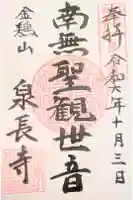 奉拝 令和六年十月三日
南無聖観世音
金鶏山
泉長寺